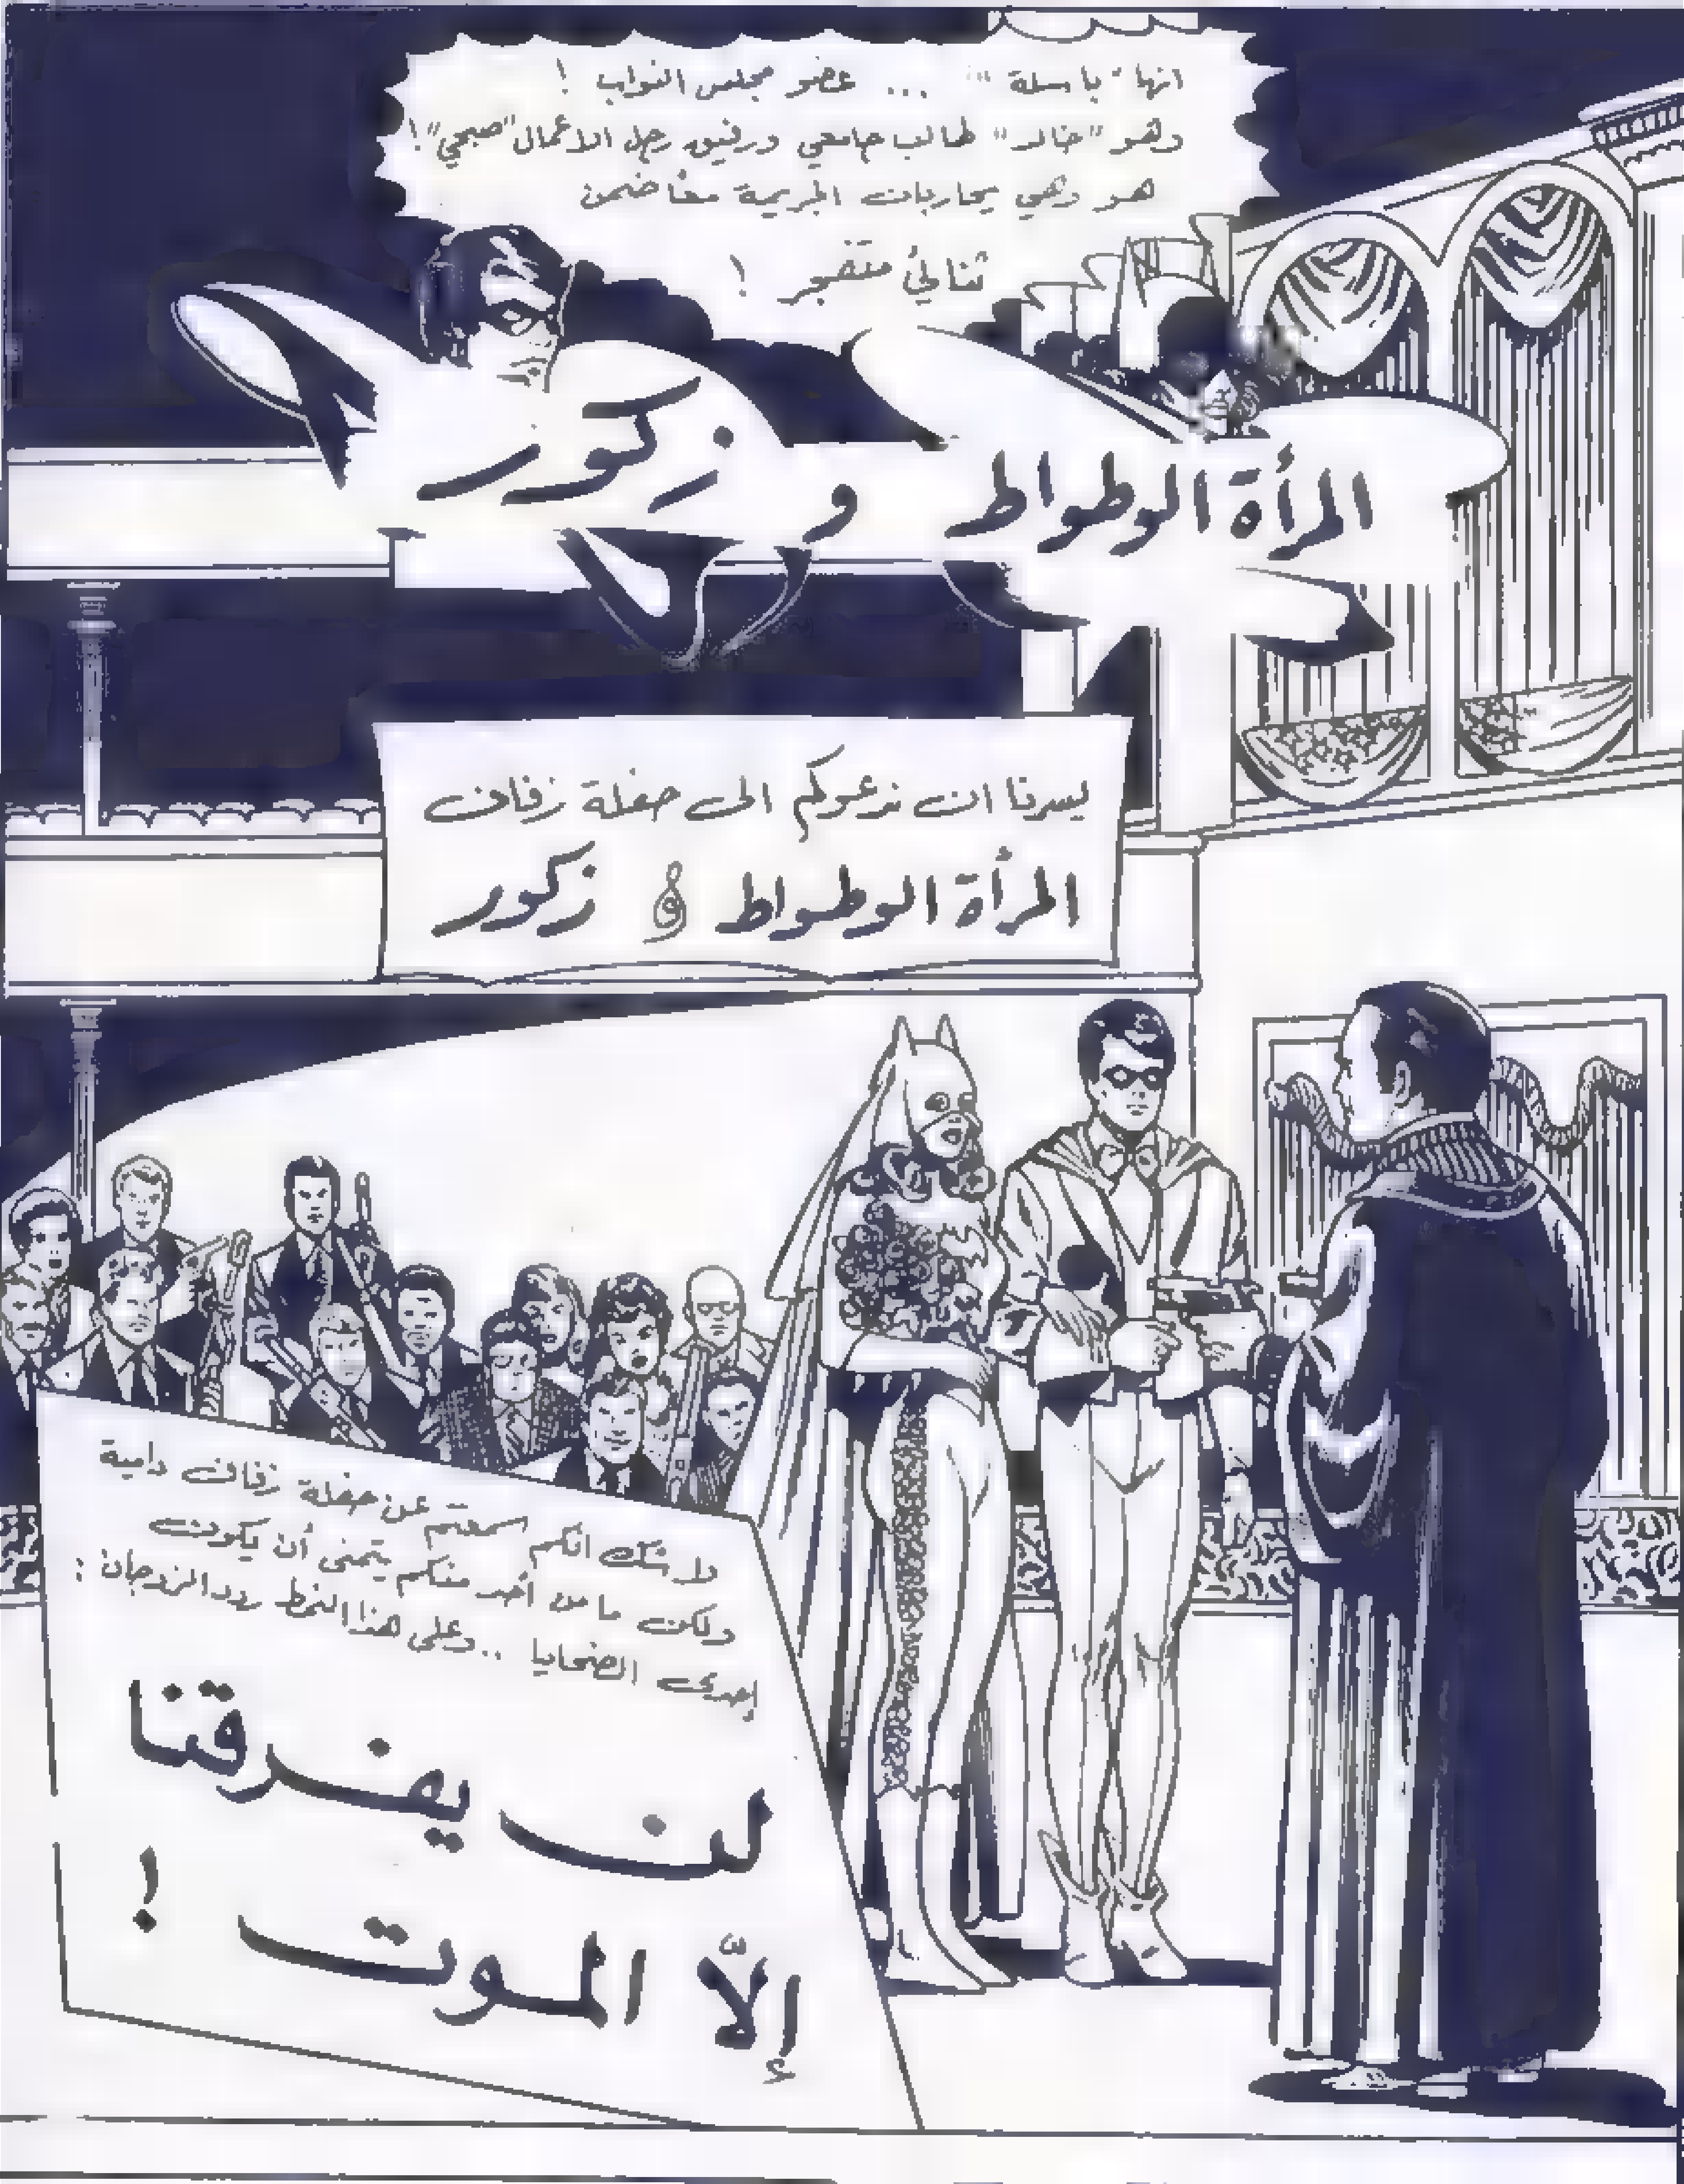 انها "باسلة" ... عضو مجلس النواب !
وهو "خالد" طالب جامعي ورفيق رجل الاعمال "صبحي"!
هو وهي يحاربان الجريمة معًا ضمن
ثنائيّ متفجر !
المرأة الوطواط و زكور
يسرنا ان ندعوكم الى حفلة زفاف
المرأة الوطواط و زكور
لاشك انكم سمعتم عن حفلة زفاف دامية
ولكن ما من أحد منكم يتمنى أن يكون
إحدى الضحايا .. وعلى هذا النمط ردد الزوجان :
لن يفرقنا
إلّا الموت !